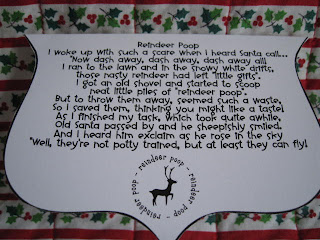 Reindeer Poop
I woke up with such a scare when I heard Santa call...
"Now dash away, dash away, dash away all!
I ran to the lawn and in the snowy white drifts,
those nasty reindeer had left "little gifts".
I got an old shovel and started to scoop
neat little piles of "reindeer poop".
But to throw them away, seemed such a waste,
So I saved them, thinking you might like a taste!
As I finished my task, which took quite awhile,
Old Santa passed by and he sheepishly smiled.
And I heard him exclaim as he rose in the sky
"Well, they're not potty trained, but at least they can fly!
reindeer poop - reindeer poop - reindeer poop -